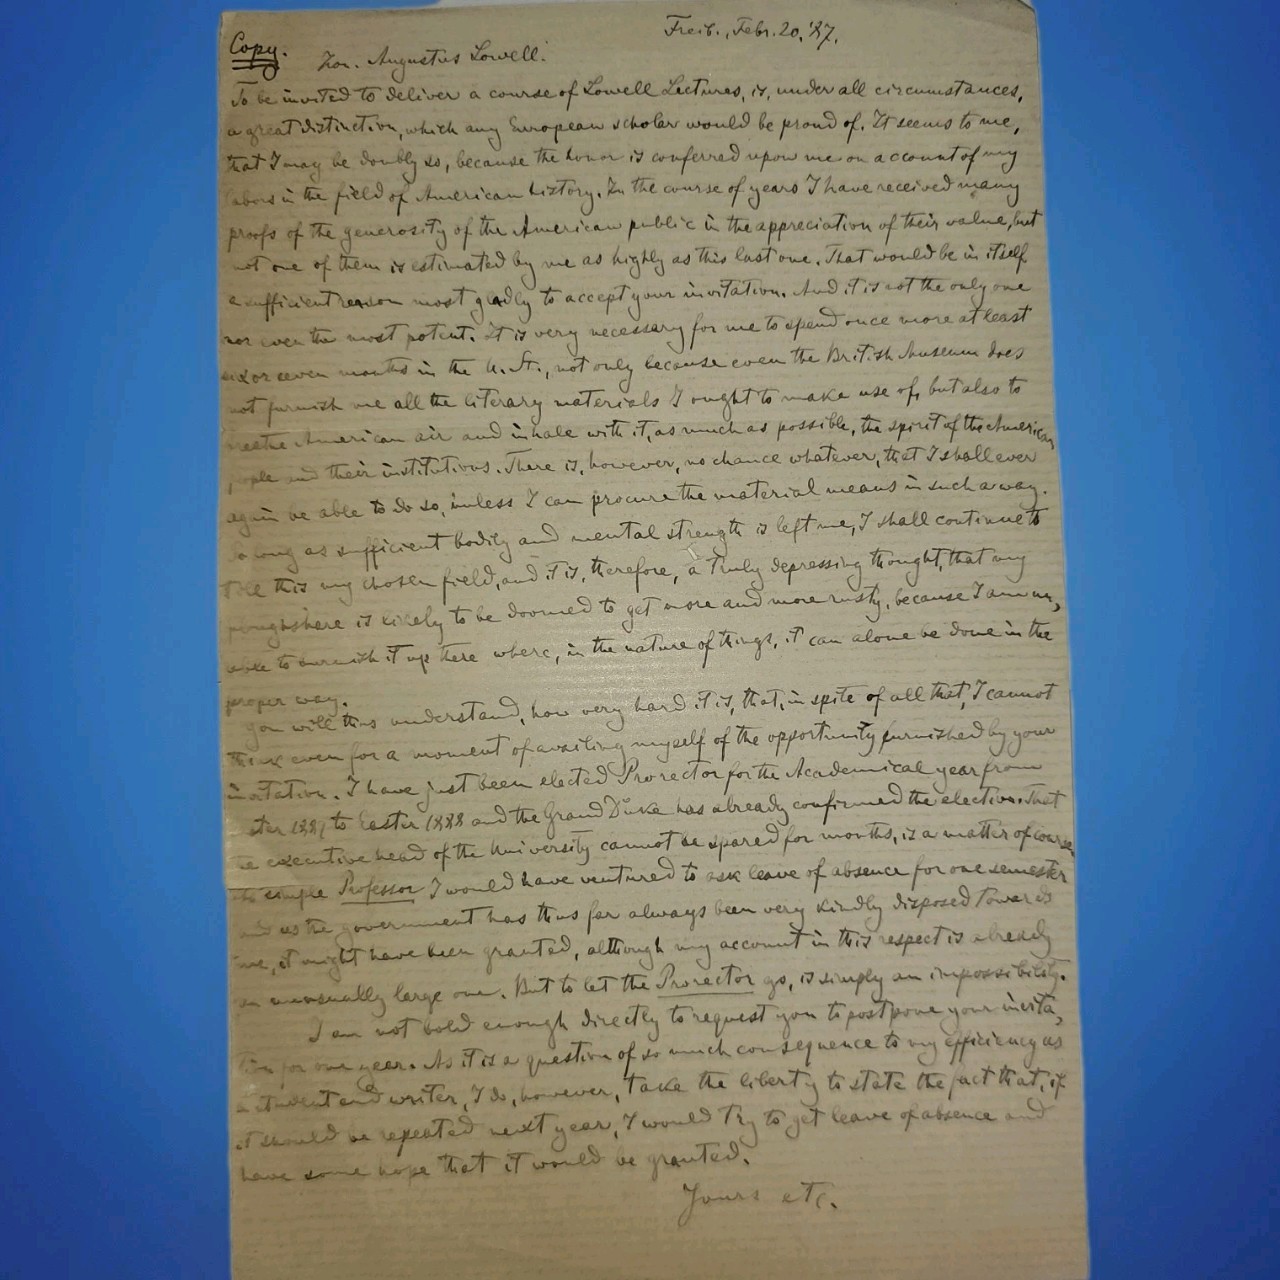 Freib., Febr. 20, '87.
Copy.
Hon. Augustus Lowell.
To be invited to deliver a course of Lowell Lectures, is, under all circumstances,
a great distinction, which any European scholar would be proud of. It seems to me,
that I may be doubly so, because the honor is conferred upon me on account of my
labors in the field of American history. In the course of years I have received many
proofs of the generosity of the American public in the appreciation of their value, but
not one of them is estimated by me as highly as this last one. That would be in itself
a sufficient reason most gladly to accept your invitation. And it is not the only one
nor even the most potent. It is very necessary for me to spend once more at least
six or seven months in the U. St., not only because even the British Museum does
not furnish me all the literary materials I ought to make use of, but also to
reathe American air and inhale with it, as much as possible, the spirit of the American
people and their institutions. There is, however, no chance whatever, that I shall ever
again be able to do so, unless I can procure the material means in such a way.
So long as sufficient bodily and mental strength is left me, I shall continue to
till this my chosen field, and it is, therefore, a truly depressing thought, that my
ploughshare is likely to be doomed to get more and more rusty, because I am un,
able to burnish it up there where, in the nature of things, it can alone be done in the
proper way.
You will thus understand, how very hard it is, that, in spite of all that, I cannot
think even for a moment of availing myself of the opportunity furnished by your
invitation. I have just been elected Prorector for the Academical year from
ster 1887 to Easter 1888 and the Grand Duke has already confirmed the election. That
he executive head of the University cannot be spared for months, is a matter of course.
As simple Professor I would have ventured to ask leave of absence for one semester
and as the government has thus far always been very kindly disposed towards
me, it might have been granted, although my account in this respect is already
an unusually large one. But to let the Prorector go, is simply an impossibility.
I am not bold enough directly to request you to postpone your invita,
tion for one year. As it is a question of so much consequence to my efficiency as
a student and writer, I do, however, take the liberty to state the fact that, if
it should be repeated next year, I would try to get leave of absence and
have some hope that it would be granted.
Yours etc.